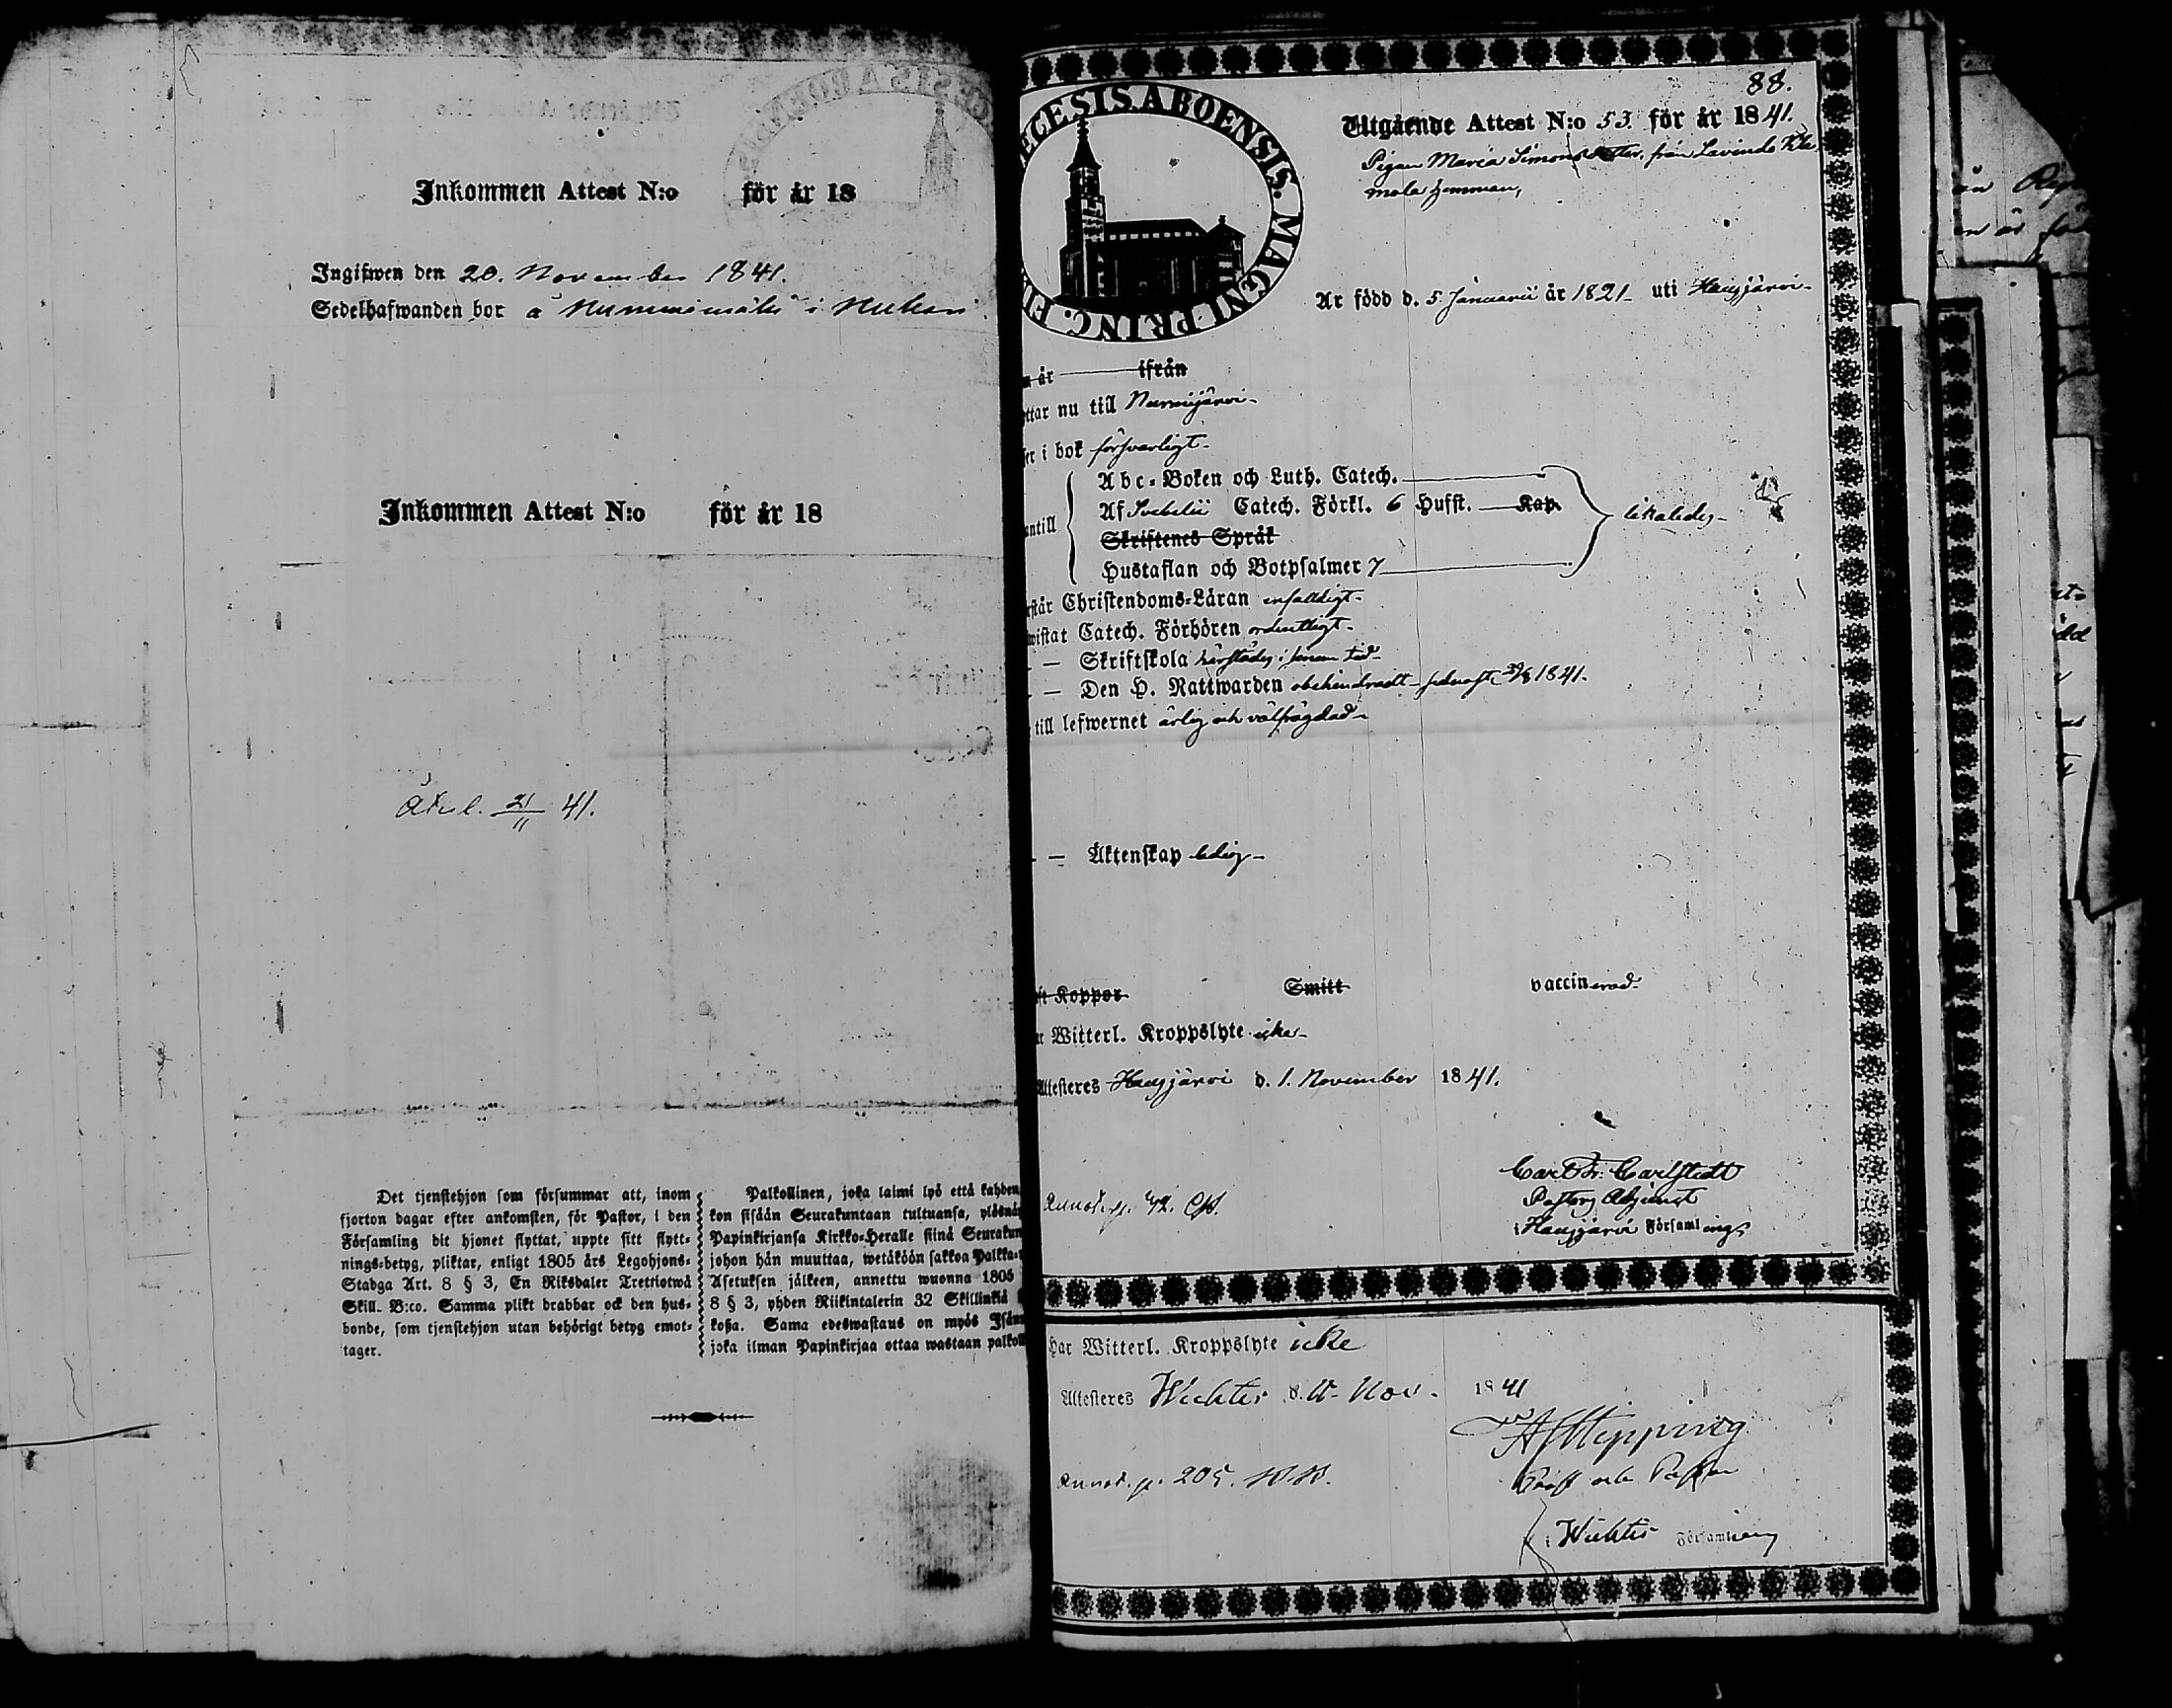 Inkommen Attest N:o för år 18
Ingifwen den 20. November 1841.
Sedelhafwanden bor å Nummismäki i
Inkommen Attest N:o för år 18
21/11 41.
Det tjenstehjon som försummar att, inom
fjorton dagar efter ankomsten, för Pastor, i den
Församling dit hjonet flyttat, uppte sitt flytt-
nings-betyg, pliktar, enligt 1805 års Legohjons-
Stadga Art. 8 § 3, En Riksdaler Trettiotwå
Skill. B:co. Samma plikt drabbar ock den hus-
bonde, som tjenstehjon utan behörigt betyg emot-
tager.
Palkollinen, joka laimi lyö että kahden
kon sisään Seurakuntaan tultuansa, ylösnä
Papinkirjansa Kirkko-Heralle siinä Seurakun
johon hän muuttaa, wetäköön sakkoa Palkka-
Asetuksen jälkeen, annettu wuonna 1805
8 § 3, yhden Riikintalerin 32 Skillinkiä
koßa. Sama edeswastaus on myös Isän
joka ilman Papinkirjaa ottaa wastaan palkoll
88.
ECESIS ABOENSIS. MAGNI PRINC. FI
Utgående Attest N:o 53 för år 1841.
Pigan Maria Simonsdotter, från Lavindo
mala hemman,
Är född d. 5 Januarii år 1821 uti Hausjärvi
n år ifrån
ttar nu till Nurmijärvi
er i bok försvarligt
antill
Abc-Boken och Luth. Catech.
Af Svebelii Catech. Förkl. 6 Hufst. Kap.
Skriftenes Språk
Hustaflan och Botpsalmer 7
likaledes
rstår Christendoms-Läran enfaldigt
wistat Catech. Förhören ordentligt
— Skriftskola härstädes i sinom tid
— Den H. Nattwarden obehindradt sednast 1841.
till lefwernet ärlig och välfrägdad
— Äktenskap ledig
ft Koppor Smitt vaccinerad
Witterl. Kroppslyte icke
Attesteres Hausjärvi d. 1. November 1841.
Carl Fr. Carlstedt
Pastors Adjunct
i Hausjärvi Församlings
Annot. p. 42.
Har Witterl. Kroppslyte icke
Attesteres Wichtis d. Nov. 1841
Annot. p. 205.
Prost och Pastor
i Wichtis Församling